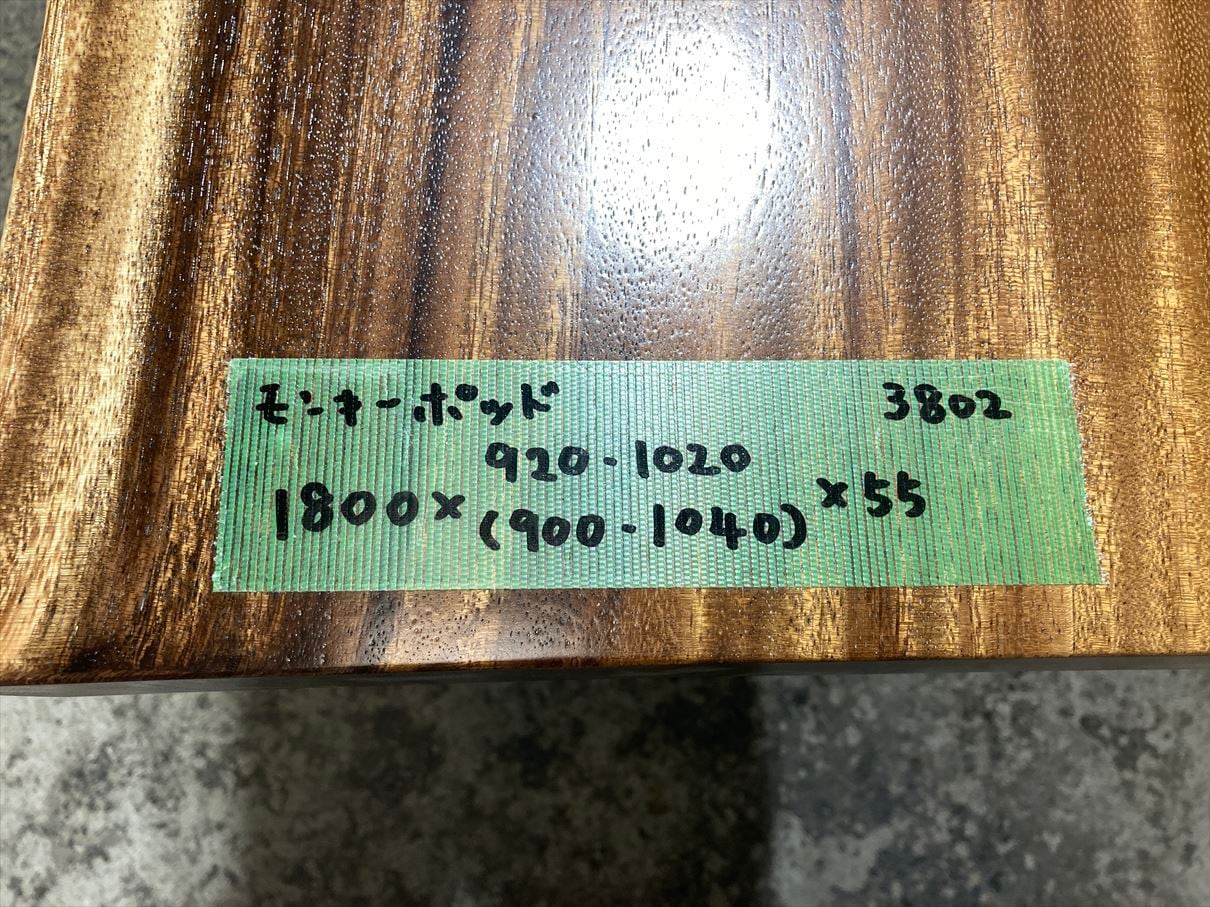 モンキーポッド 3802
920-1020
1800×(900-1040)×55